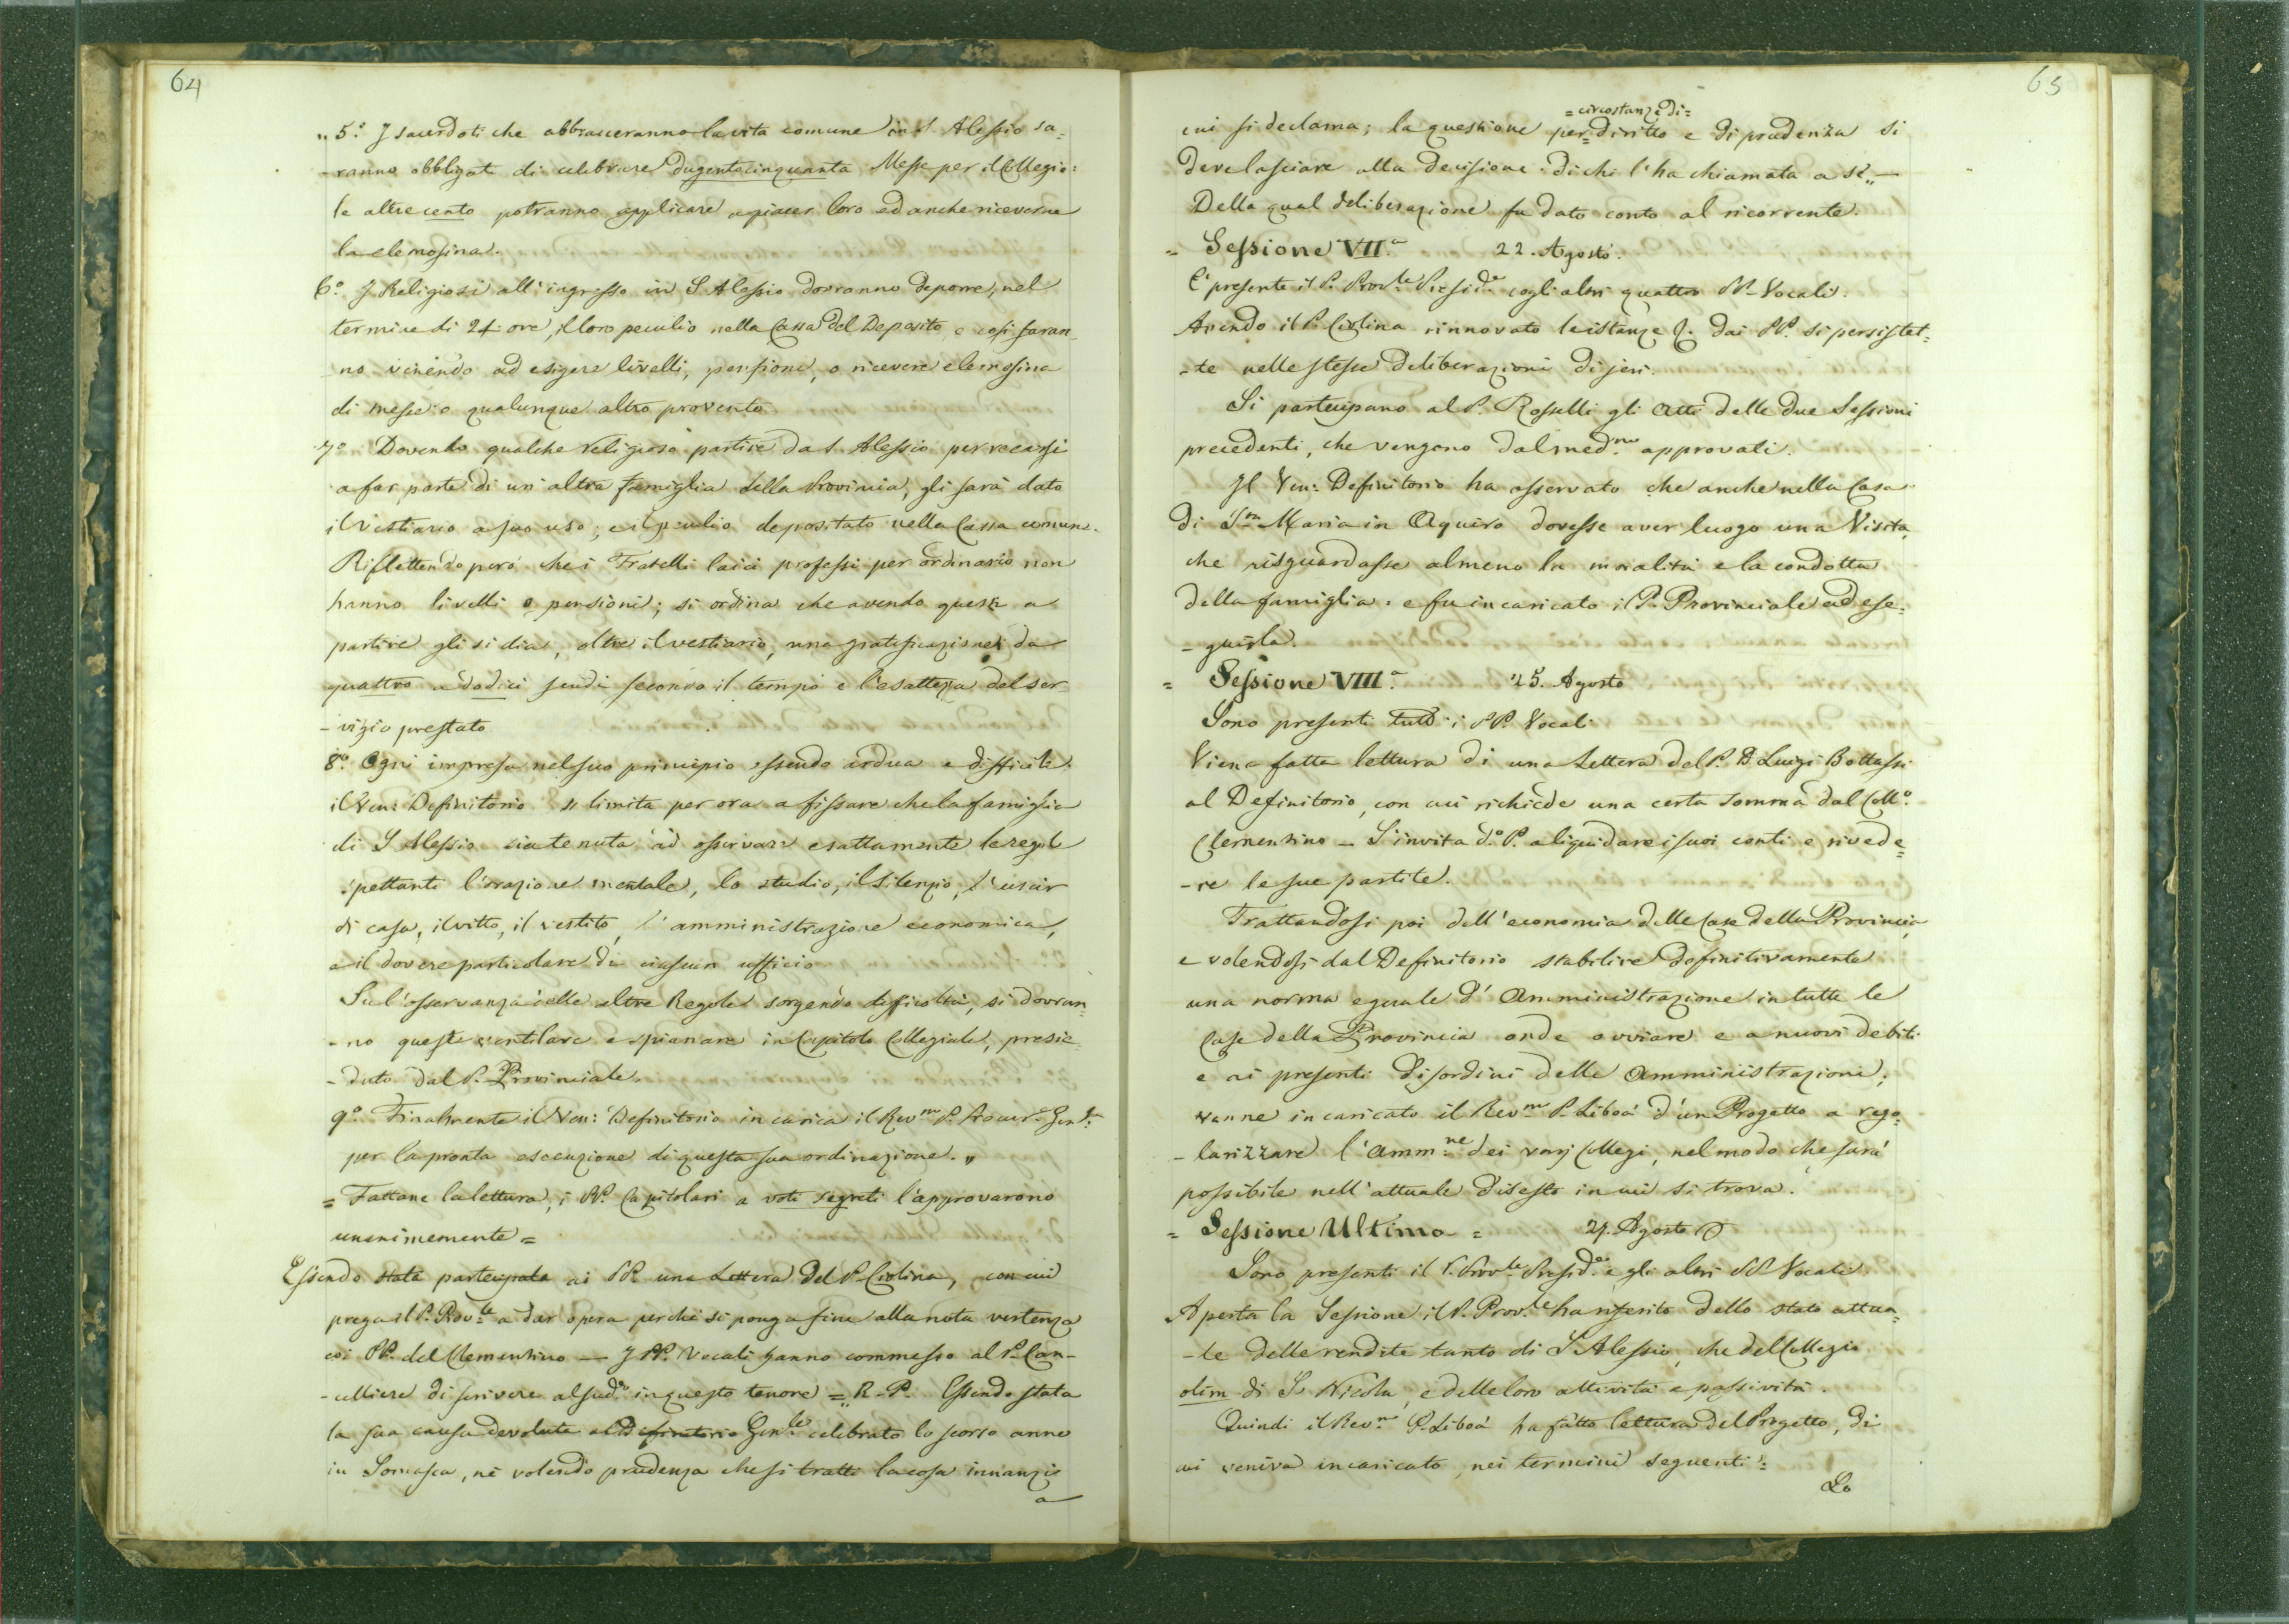 64
„ 5.° I sacerdoti che abbracceranno la vita comune in S. Alessio sa=
-ranno obbligati di celebrare dugentocinquanta Messe per il Collegio:
le altre cento potranno applicare a piacer loro ed anche riceverne
la elemosina.
6.° I Religiosi all'ingresso in S. Alessio dovranno deporre, nel
termine di 24 ore, il loro peculio nella Cassa del Deposito, e così faran_
_no venendo ad esigere livelli, pensioni, o ricevere elemosina
di messe o qualunque altro provento
7.° Dovendo qualche religioso partire da S. Alessio per recarsi
a far parte di un'altra famiglia della Provincia, gli sarà dato
il vestiario a suo uso; e il peculio depositato nella Cassa comun.
Riflettendo però che i Fratelli laici professi per ordinario non
hanno livelli o pensioni; si ordina che avendo questi a
partire gli si dia, oltre il vestiario, una gratificazione da
quattro a dodici scudi secondo il tempo e l'esattezza del ser_
-vizio prestato
8.° Ogni impresa nel suo principio essendo ardua e difficile.
il Ven: Definitorio si limita per ora a fissare che la famiglia
di S. Alessio sia tenuta ad osservare esattamente le regole
spettanti l'orazione mentale, lo studio, il silenzio, l'uscir
di casa, il vitto, il vestito, l'amministrazione economica,
e il dovere particolare di ciascun ufficio
Sull'osservanza delle altre Regole sorgendo difficoltà, si dovran=
-no queste ventilare e spianare in Capitolo Collegiale, presie_
-duto dal P. Provinciale.
9.° Finalmente il Ven: Definitorio incarica il Rev.mo P. Gen.le
per la pronta esecuzione di questa sua ordinazione. „
= Fattane la lettura, i PP. Capitolari a voti segreti l'approvarono
unanimemente =
Essendo stata partecipata ai PP. una Lettera del P. Civolina, con cui
prega il P. Prov.le a dar opera perchè si ponga fine alla nota vertenza
coi PP. del Clementino — I PP. Vocali hanno commesso al P. Can-
-celliere di scrivere al sud.o in questo tenore = „ R. P. Essendo stata
la sua causa devoluta al Definitorio Gen.le celebrato lo scorso anno
in Somasca, nè volendo prudenza che si tratti la cosa innanzi
a
65
= circostanze di =
cui si declama; la questione per diritto e di prudenza si
deve lasciare alla decisione di chi l'ha chiamata a sè „ —
Della qual deliberazione fu dato conto al ricorrente.
= Sessione VII.a 22. Agosto.
È presente il P. Prov.le Presid.e cogli altri quattro PP. Vocali.
Avendo il P. Civolina rinnovato le istanze &. dai PP. si persistet=
-te nelle stesse deliberazioni di jeri.
Si partecipano al P. Rosselli gli atti delle due Sessioni
precedenti, che vengono dal med.mo approvati.
Il Ven: Definitorio ha osservato che anche nella Casa
di S.ta Maria in Aquiro dovesse aver luogo una Visita,
che risguardasse almeno la moralità e la condotta
della famiglia: e fu incaricato il P. Provinciale ad ese=
-guirla.
= Sessione VIII.a 25. Agosto
Sono presenti tutti i PP. Vocali
Viene fatta lettura di una Lettera del P. D. Luigi Bottassi
al Definitorio, con cui richiede una certa somma dal Coll.o
Clementino — S'invita d.o P. a liquidare i suoi conti e rivede=
-re le sue partite.
Trattandosi poi dell'economia delle Case della Provincia,
e volendosi dal Definitorio stabilire definitivamente
una norma eguale d'Amministrazione in tutte le
Case della Provincia onde ovviare e a nuovi debiti
e ai presenti disordini delle Amministrazioni,
venne incaricato il Rev.mo P. Libois d'un Progetto a rego=
-larizzare l'Amm.ne dei varj Collegi, nel modo che sarà
possibile nell'attuale disesto in cui si trova.
= Sessione Ultima = 27. Agosto
Sono presenti il P. Prov.le Presid.e e gli altri PP. Vocali
Aperta la Sessione il P. Prov.le ha riferito dello stato attua=
-le delle rendite tanto di S. Alessio, che del Collegio
olim di S. Nicola, e delle loro attività e passività.
Quindi il Rev.mo P. Libois ha fatto lettura del Progetto, di
cui veniva incaricato, nei termini seguenti:
Lo